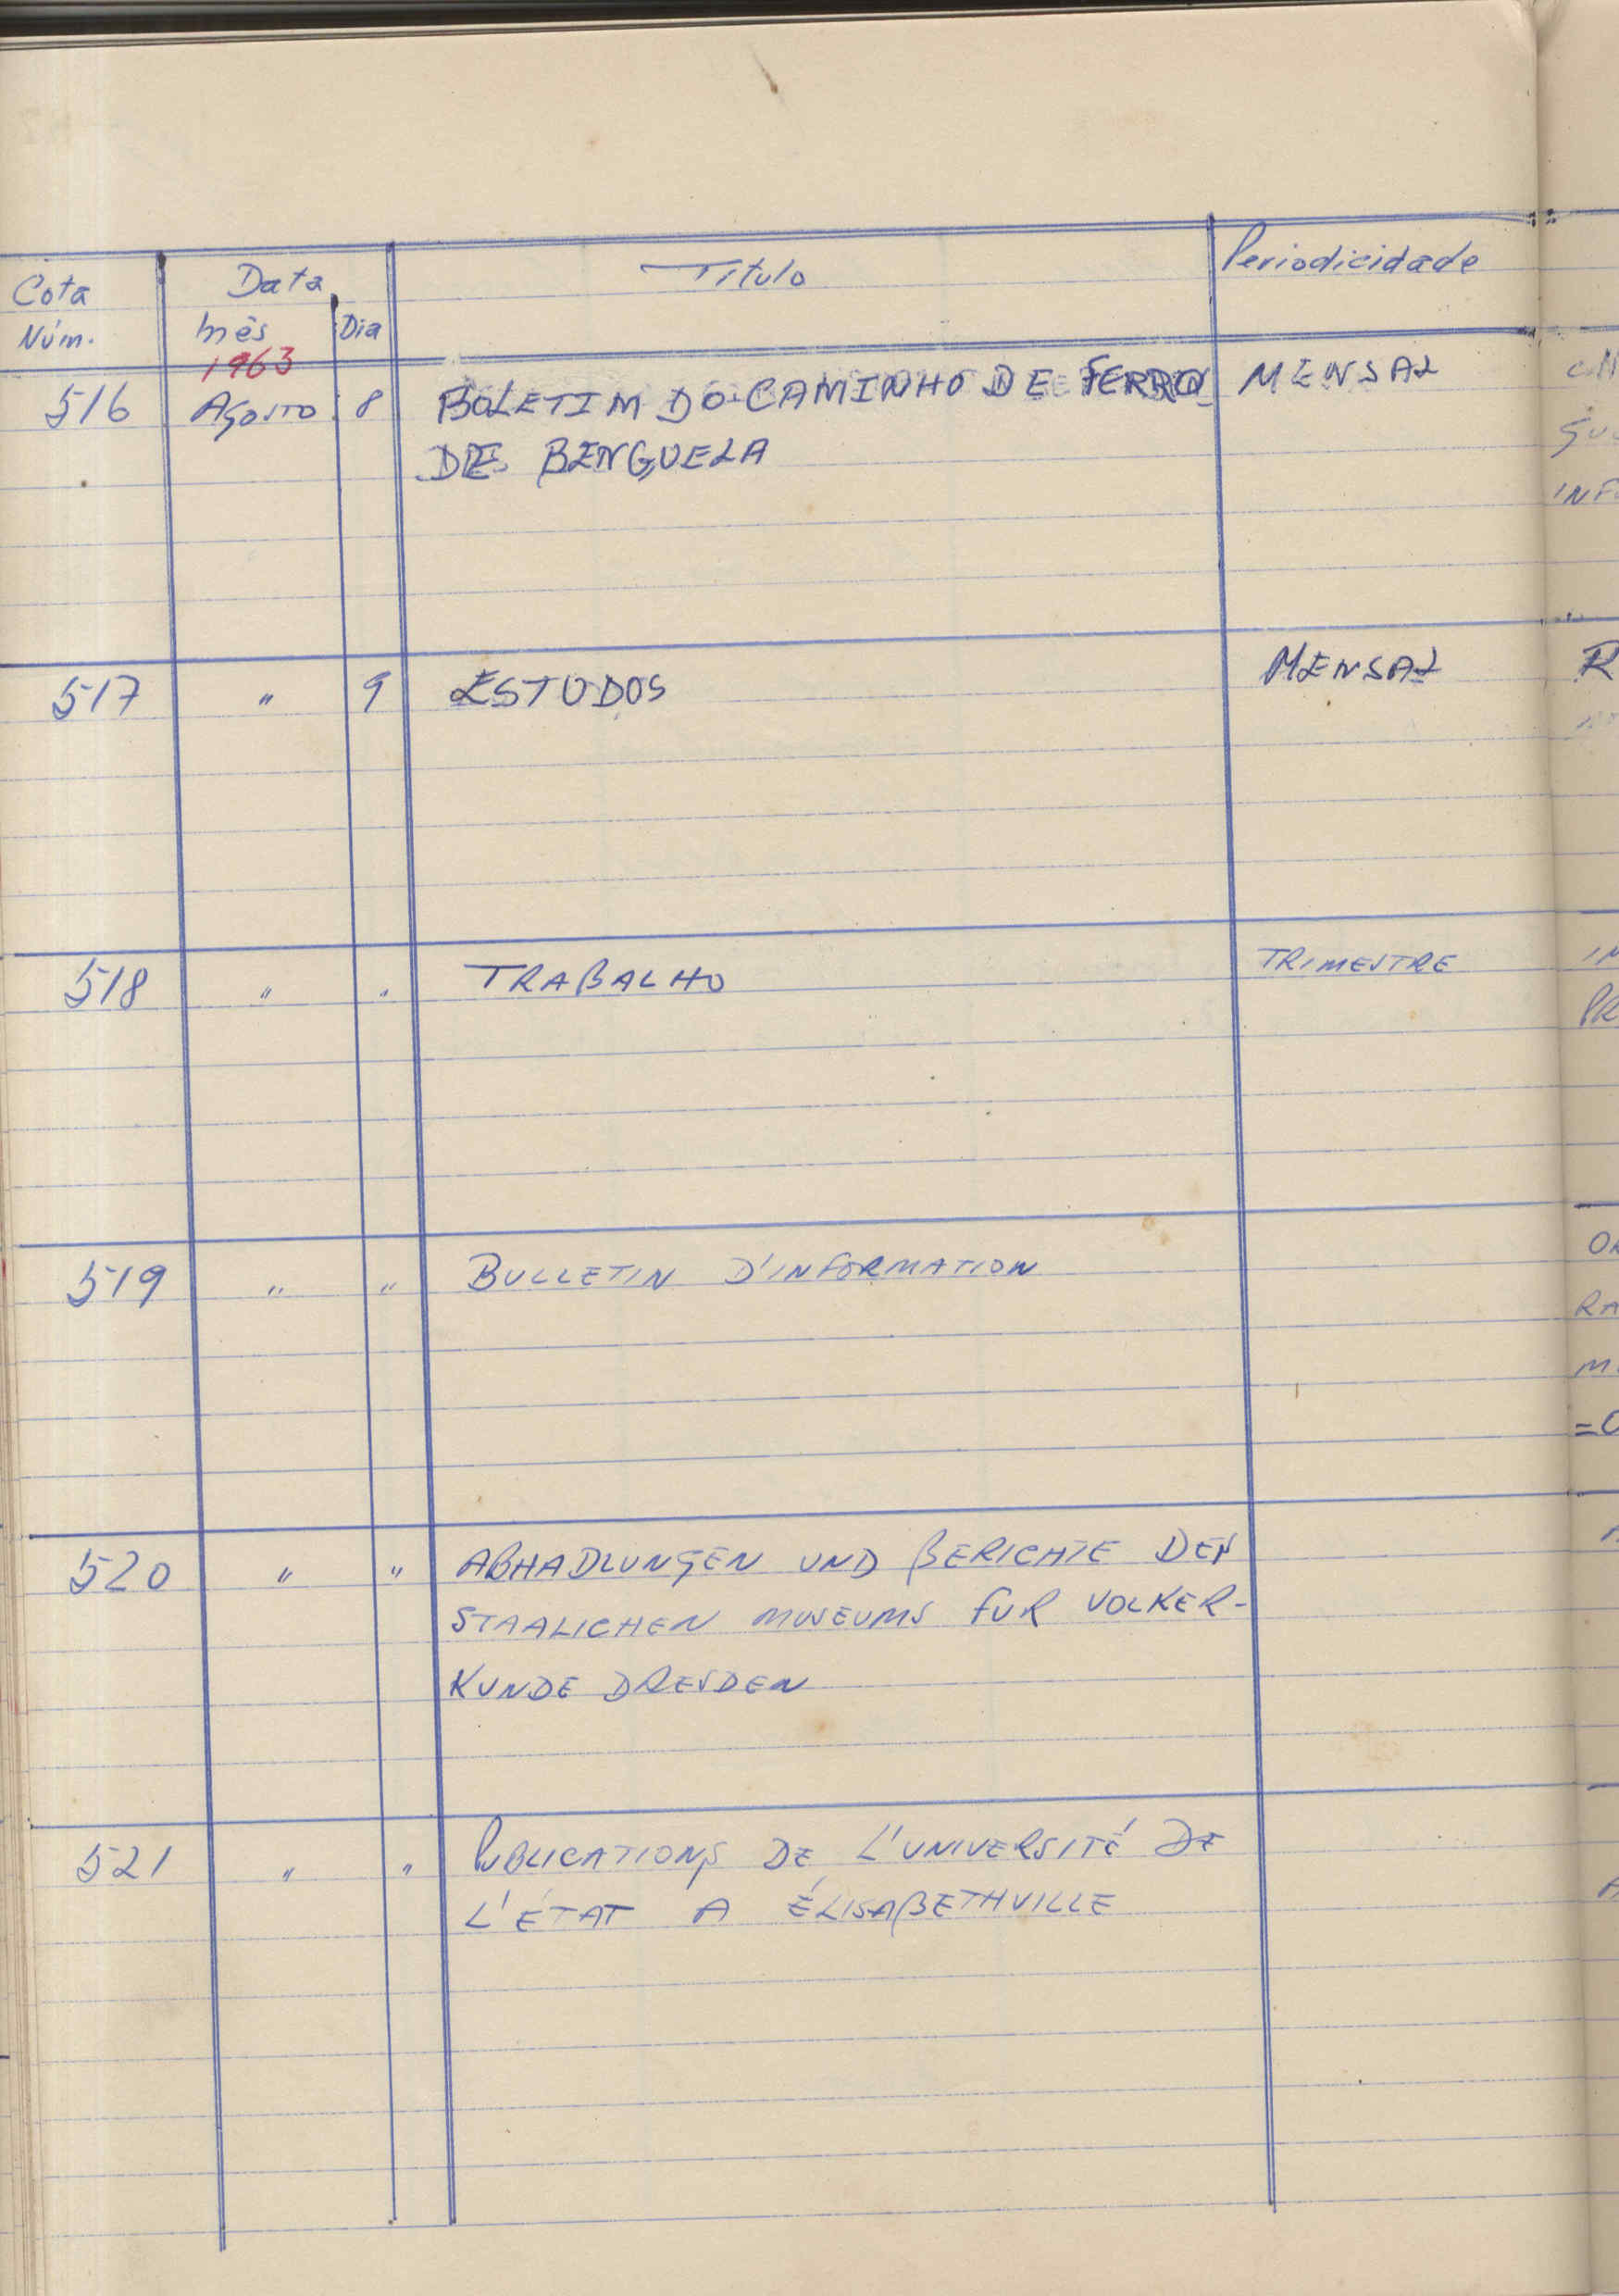 Cota Data Titulo Periodicidade
Núm. Mês Dia
1963
516 Agosto 8 BOLETIM DO CAMINHO DE FERRO MENSAL
DE BENGUELA
517 " 9 ESTUDOS MENSAL
518 " " TRABALHO TRIMESTRE
519 " " BULLETIN D'INFORMATION
520 " " ABHADLUNGEN UND BERICHTE DES
STAALICHEN MUSEUMS FUR VOLKER-
KUNDE DRESDEN
521 " " PUBLICATIONS DE L'UNIVERSITÉ DE
L'ÉTAT A ÉLISABETHVILLE